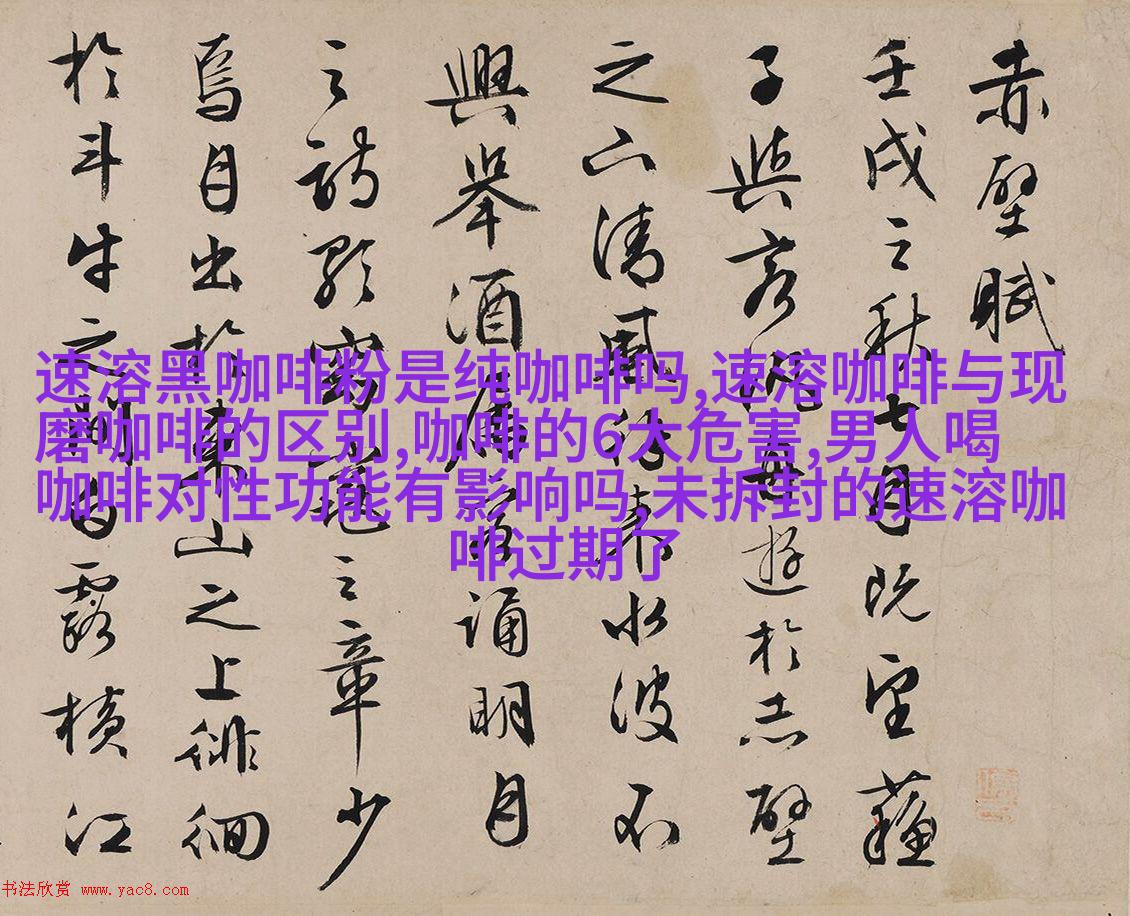 赤壁賦
壬戌之秋七月既望蘇
子與客泛舟遊於赤壁
之下清風徐來水波不
興舉酒屬客誦明月
之詩歌窈窕之章少
焉月出於東山之上徘徊
於斗牛之間白露橫江
速溶黑咖啡粉是纯咖啡吗,速溶咖啡与现
磨咖啡的区别,咖啡的6大危害,男人喝
咖啡对性功能有影响吗,未拆封的速溶咖
啡过期了
书法欣赏 www.yac8.com